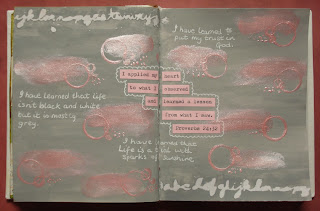 I have learned to
put my trust in
God.
I applied my heart
to what I observed
and learned a lesson
from what I saw.
Proverbs 24:32
I have learned that life
isn't black and white
but it is mostly
grey.
I have learned that
Life is a with
sparks of sunshine
abcdefghijklmnopq